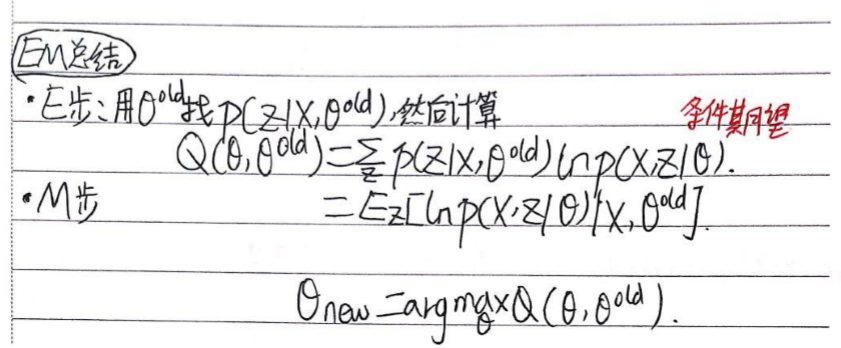 EM总结
·E步：用θ^old找p(z|X,θ^old),然后计算
条件期望
Q(θ,θ^old)=∑_z p(z|X,θ^old)ln p(X,z|θ).
·M步
=E_z[ln p(X,z|θ)|X,θ^old].
θ_new=argmax_θ Q(θ,θ^old).